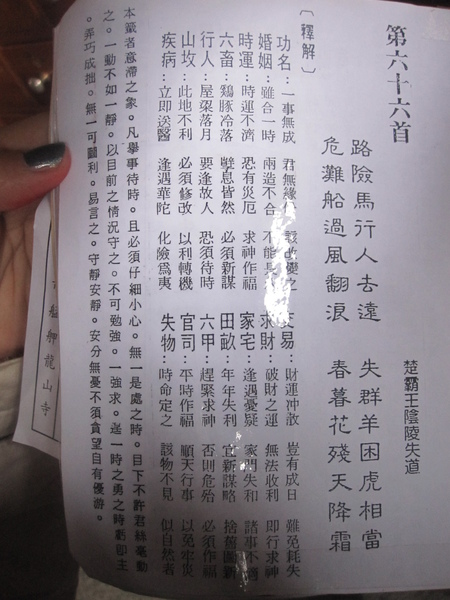 第六十六首
楚霸王陰陵失道
路險馬行人去遠 失群羊困虎相當
危難船過風翻浪 春暮花殘天降霜
〔釋解〕
功名：一事無成 君無緣 易：財運冲散 豈有成日 難免耗失
婚姻：雖合一時 兩造不合 不能 求財：破財之運 無法收利 即行求神
時運：時運不濟 恐有災厄 求神作福 家宅：逢遇憂疑 家門失和 諸事不
六畜：鷄豚冷落 孽息皆然 必須新謀 田畝：年年失利 宜新謀略 捨舊圖新
行人：屋梁落月 要逢故人 恐須待時 六甲：趕緊求神 否則危殆 必須作福
山坟：此地不利 必須修改 以利轉機 官司：平時作福 順天行事 以免牢災
疾病：立即送醫 逢遇華陀 化險爲夷 失物：時命定之 該物不見 似自然者
本籤者意滯之象。凡舉事待時。且必須仔細小心。無一是處之時。目下不許君絲毫動
之。一動不如一靜。以目前之情況守之。不可勉強。一強求。逞一時之勇之時虧卽主
。弄巧成拙。無一可圖利。易言之。守靜安靜。安分無憂不須貪望自有優游。
艋舺龍山寺